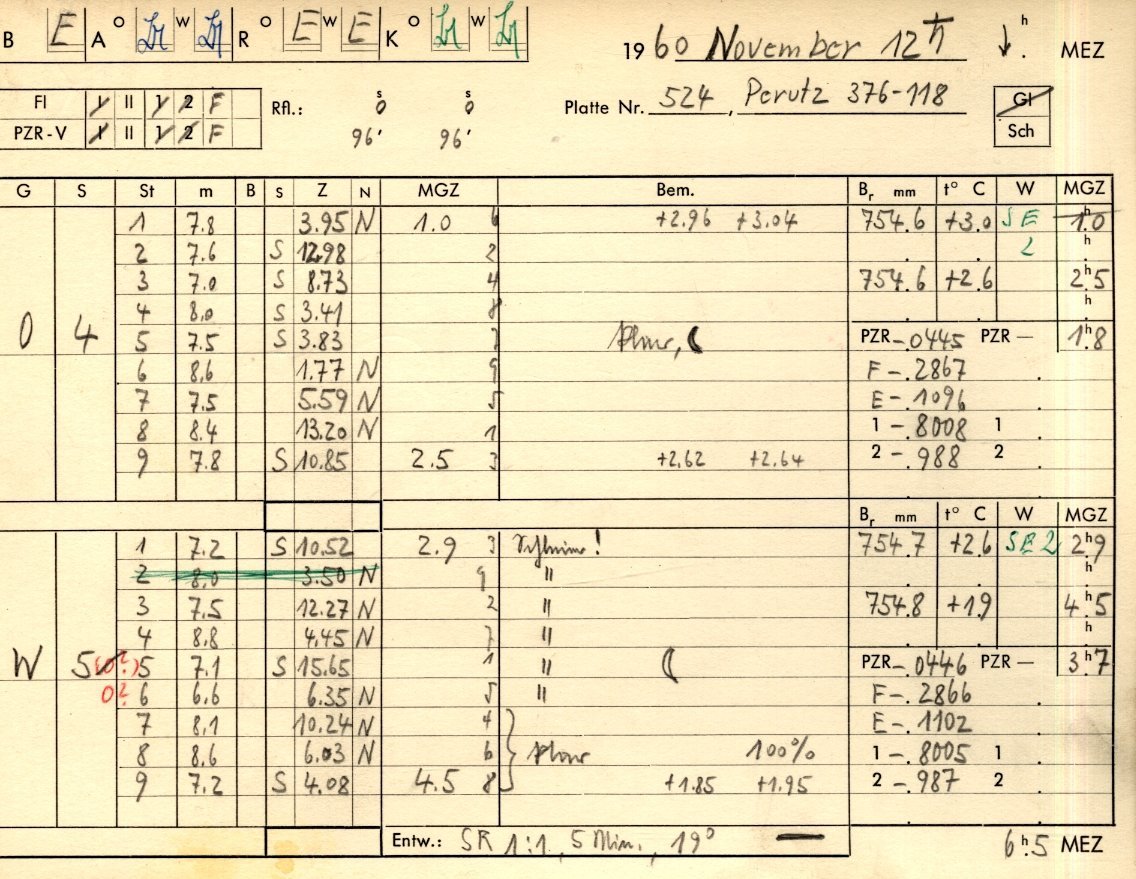 B E A o W R o E W E K o W
19 60 November 12 h ↓. h MEZ
Fl I II 1 2 F Rfl.: s 0 s 0 Platte Nr. 524, Perutz 376-118 Gl
PZR-V I II 1 2 F 96' 96' Sch
G S St m B S Z N MGZ Bem. Br mm t° C W MGZ
1 7.8 3.95 N 1.0 6 +2.96 +3.04 754.6 +3.0 SE 1h.0
2 7.6 S 12.98 2 2 h
3 7.0 S 8.73 4 754.6 +2.6 2h.5
4 8.0 S 3.41 8 h
O 4 5 7.5 S 3.83 7 PZR-.0445 PZR— 1h.8
6 8.6 1.77 N 9 F-.2867
7 7.5 5.59 N 5 E-.1096
8 8.4 13.20 N 1 1-.8008 1
9 7.8 S 10.85 2.5 3 +2.62 +2.64 2-.988 2
Br mm t° C W MGZ
1 7.2 S 10.52 2.9 3 754.7 +2.6 SE 2 2h.9
2 8.0 3.50 N 9 " h
3 7.5 12.27 N 2 " 754.8 +1.9 4h.5
4 8.8 4.45 N 7 " h
W 5 (0?) 5 7.1 S 15.65 1 " PZR-.0446 PZR— 3h.7
0? 6 6.6 6.35 N 5 " F-.2866
7 8.1 10.24 N 4 E-.1102
8 8.6 6.03 N 6 100% 1-.8005 1
9 7.2 S 4.08 4.5 8 +1.85 +1.95 2-.987 2
Entw.: SR 1:1, 5 Min., 19° — 6h.5 MEZ